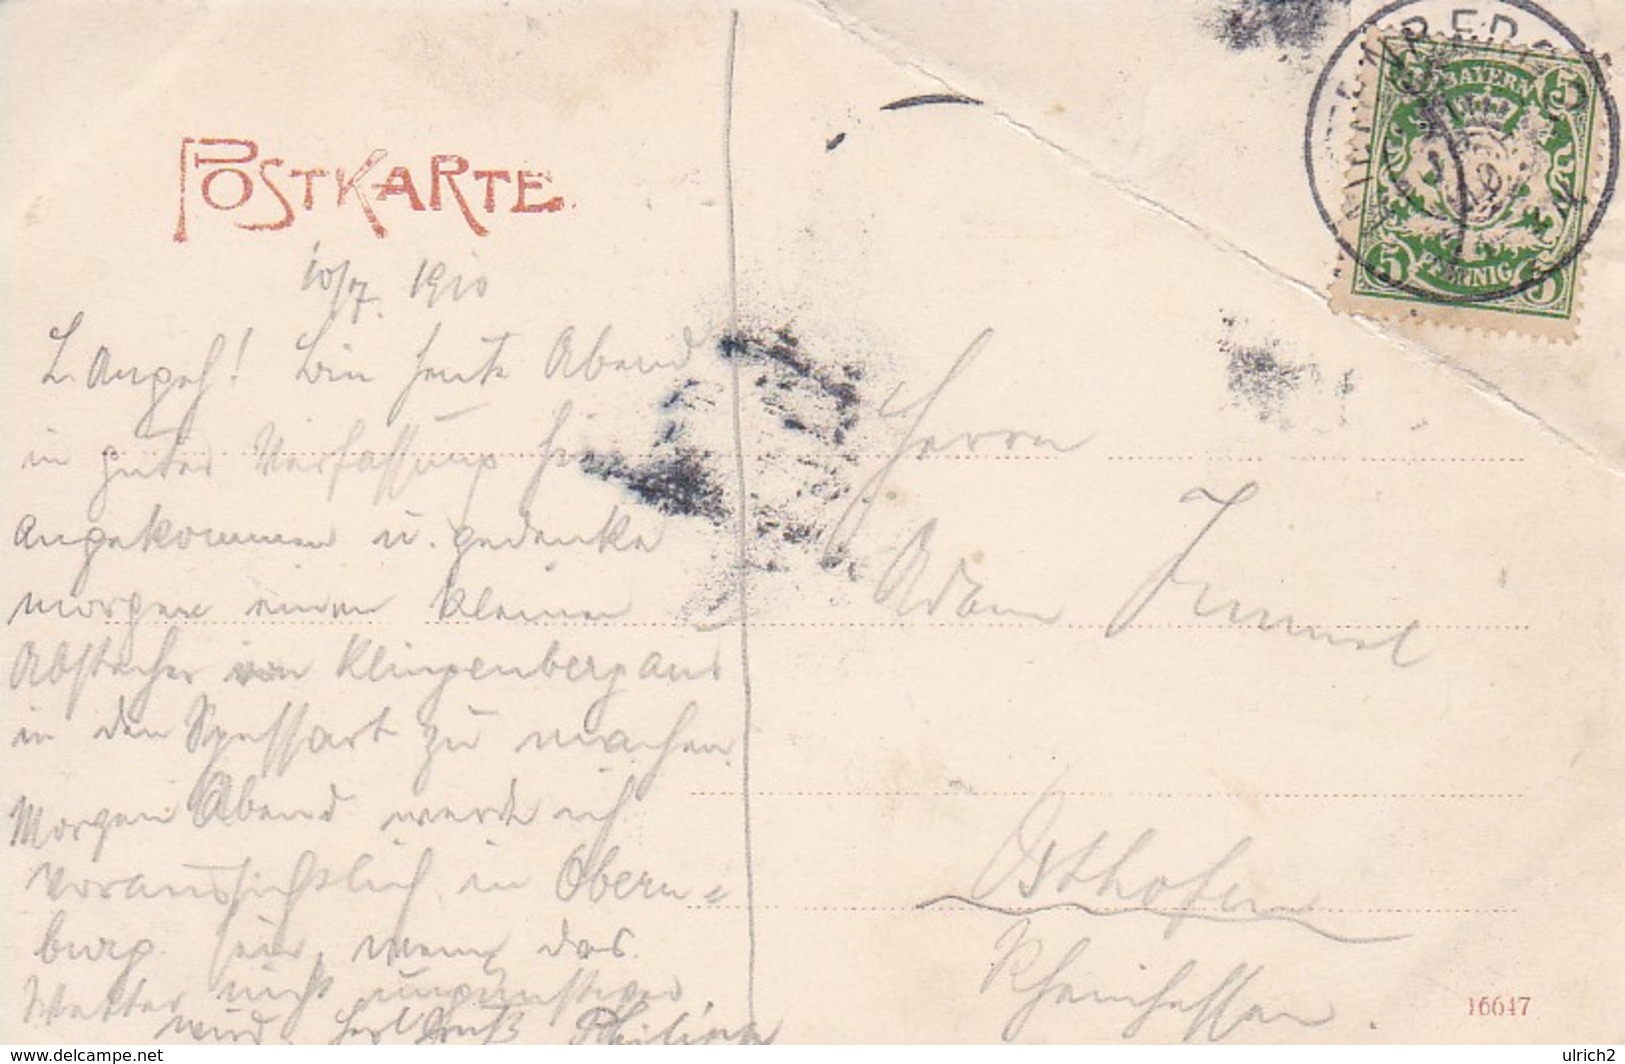 POSTKARTE
10/7. 1910
L. Bin heute Abend
in guter Verfassung hier
angekommen u. gedenke
morgen einen kleinen
Abstecher von Klingenberg aus
in den Spessart zu machen
Morgen Abend werde ich
voraussichtlich in Obern=
burg sein, wenn das
Wetter nicht ungünstiger
wird. Herzl. Gruß Philipp
Herrn
Adam
Osthofen
Rheinhessen.
BAYERN
5 5
5 PFENNIG 5
16647
www.delcampe.net
ulrich2